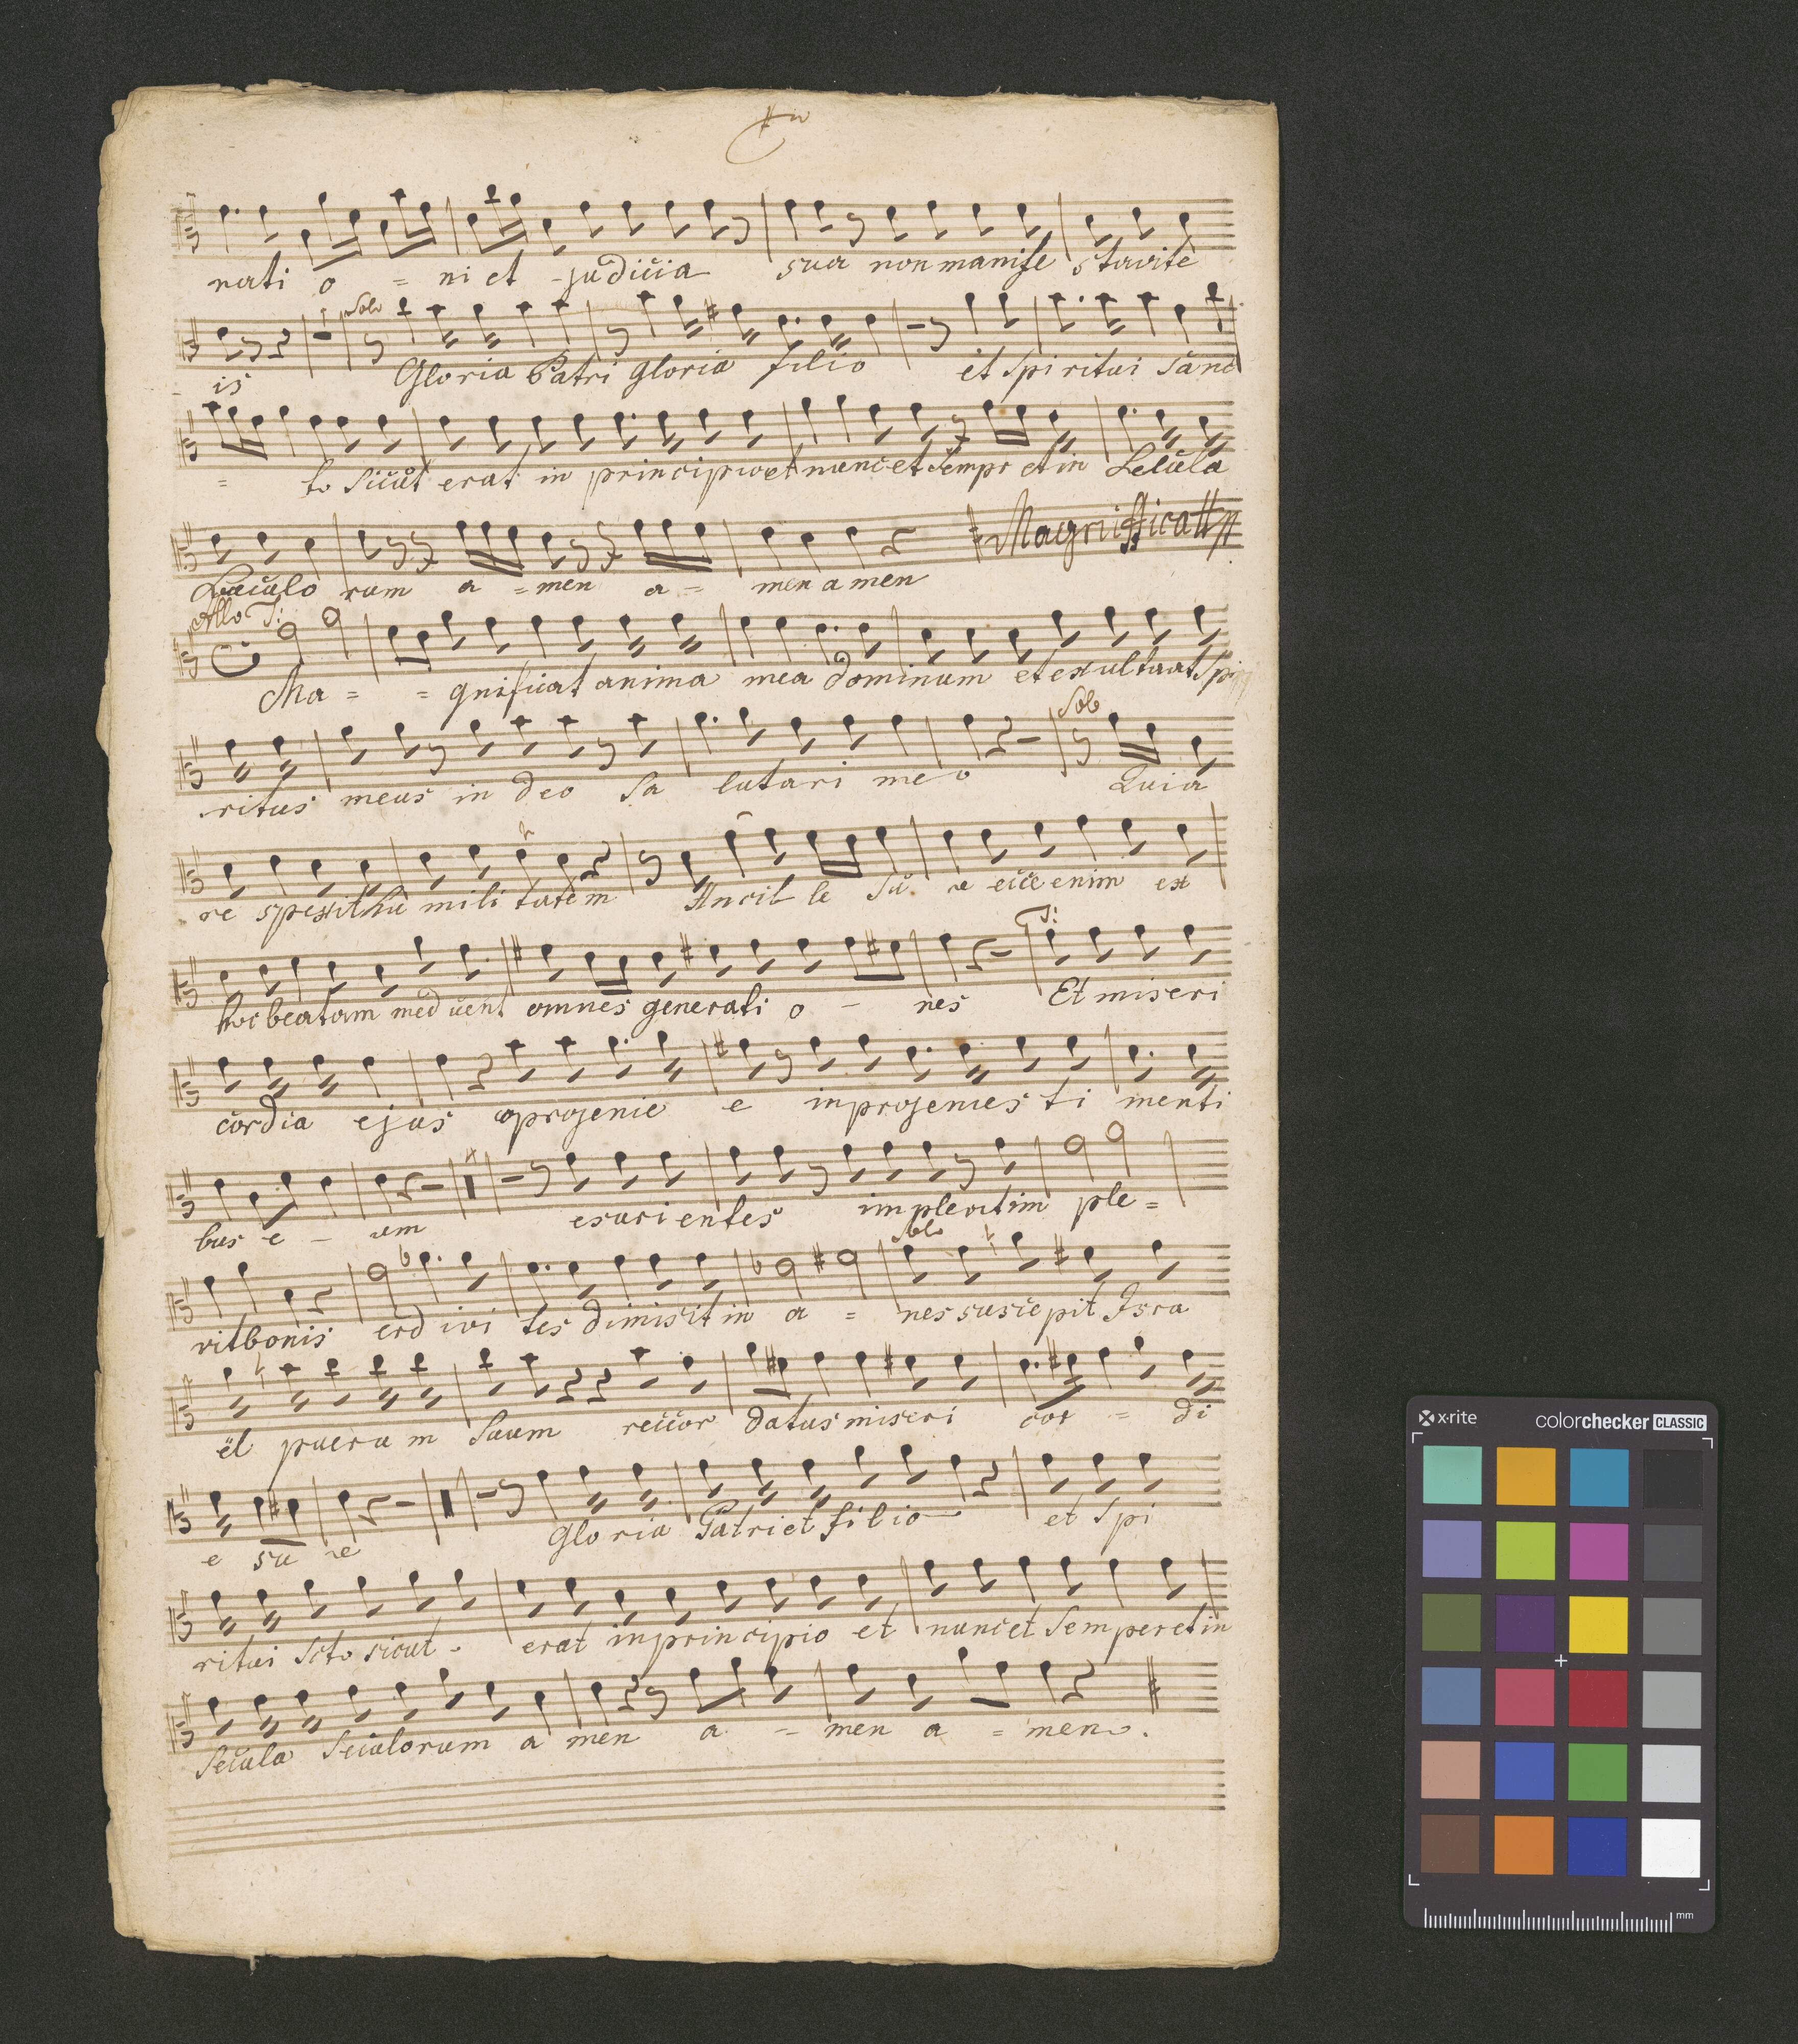 nati o = ni et - judicia sua non manife stavite
Solo
is Gloria Patri gloria filio et Spiritui Sanc
= to Sicut erat in principio et nunc et Sempr et in Secula
Magnifficatt
Seculo rum a = men a = men amen
Allo T:
Ma = = gnificat anima mea dominum et exultaat Spi
Solo
ritus meus in deo Sa lutari meo Quia
re spexit hu mili tatem Ancil le su e ecce enim ex
T:
hoc beatam med cent omnes generati o - nes Et miseri
cordia ejus aprogenie e inprogenies ti menti
bus e - um esurientes implevitim ple =
Solo
vitbonis etd ivi tes dimisit in a = nes suscepit Isra
el puerum Suum reccor datus miseri cor = di
e su e Gloria Patri et filio et Spi
ritui Scto sicut erat inprincipio et nunc et Semper et in
Secula Seculorum a men a - men a = men.
x-rite colorchecker CLASSIC
mm